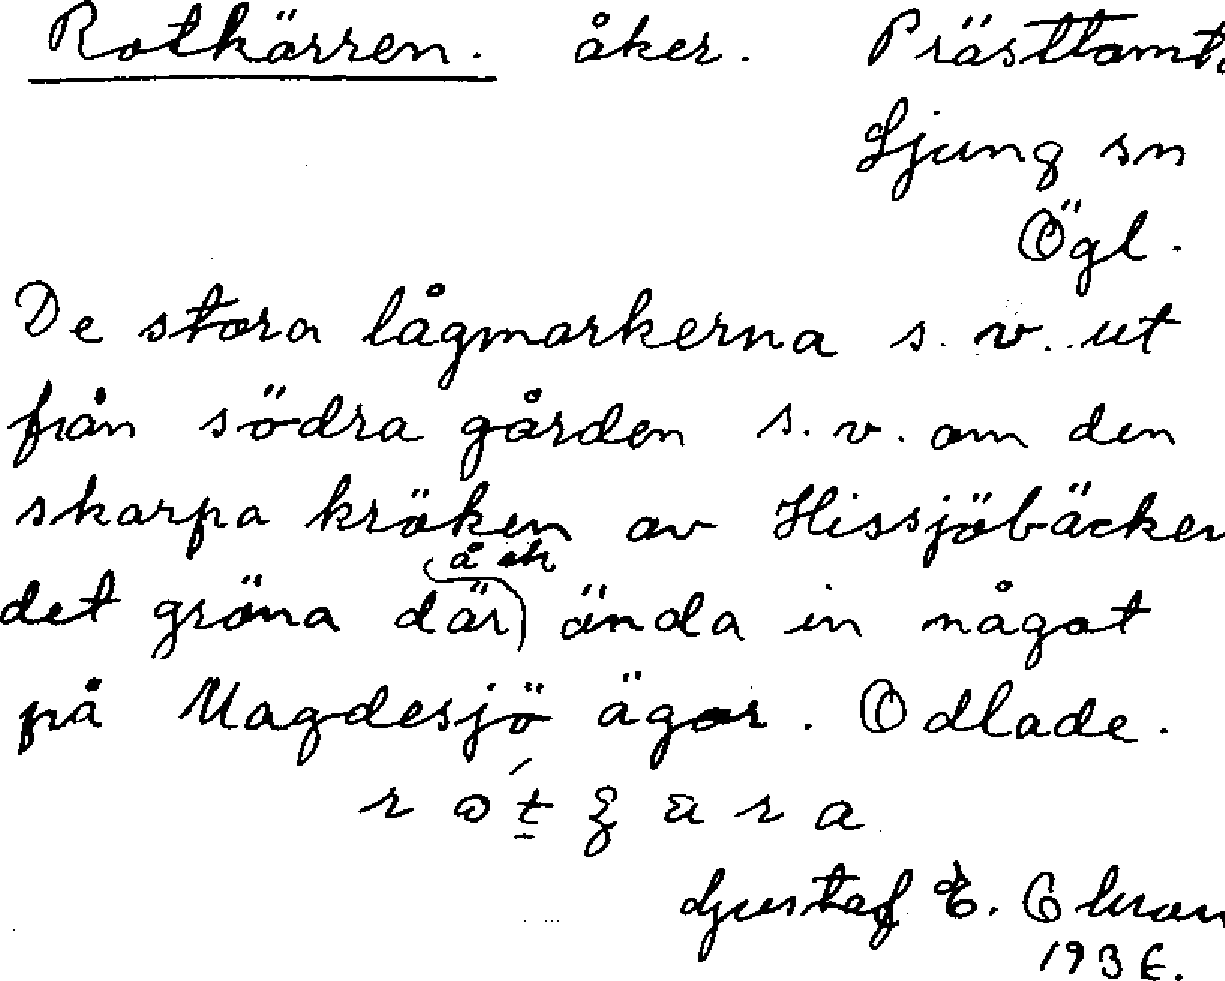 Rotkärren. åker. Prästtomt.
Ljung sn
Ögl.
De stora lågmarkerna s.v. ut
från södra gården s.v. om den
skarpa kröken av Hissjöbäcken
det gröna där) ända in något
på Magdesjö ägor. Odlade.
Gustaf E.
1936.